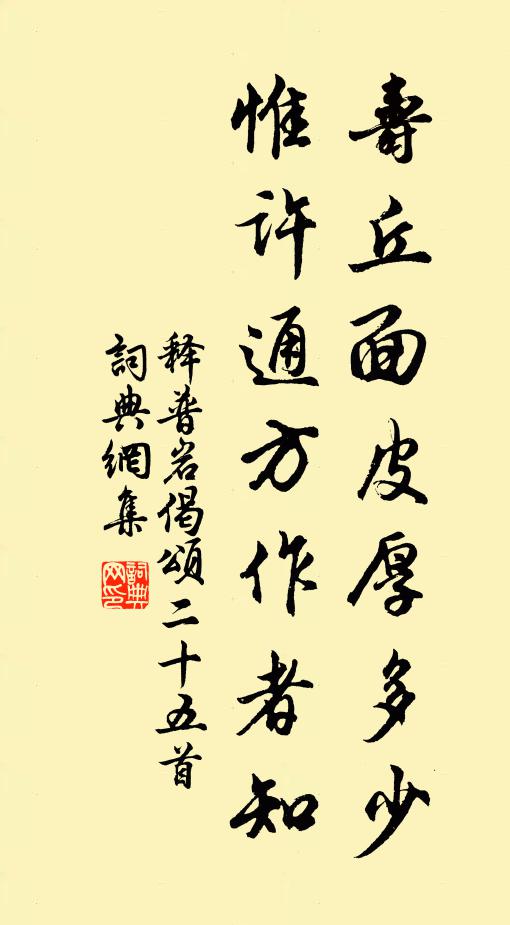 壽丘面皮厚多少
惟許通方作者知
释普岩偈頌二十五首
詞典網集
詞典
网印